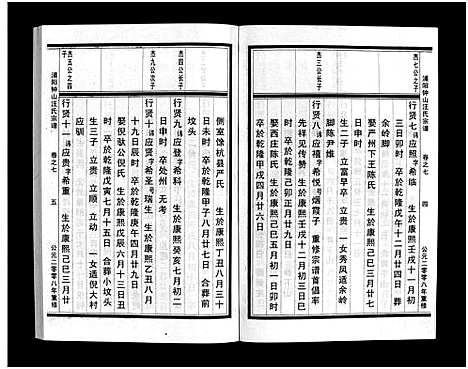 浦阳钟山汪氏宗谱 卷之七 四 公元二零零八年重修
杰七公之子
行贤七 讳应照 字希临 生於康熙壬戌十一月初
三日卯时 卒於乾隆戊午十二月廿四日 葬
余岭脚
娶严州下王陈氏 生於康熙己巳三月廿七
时 卒於乾隆 月廿八日
生二子 立富早卒 立昌 一女秀凤适余岭
脚陈尹雅
杰八公长子
行贤八 讳应禧 字希悦 号烟霞子 重修宗谱首倡率
先祥见传赞 生於康熙壬戌十二月初三日
时 卒於乾隆己卯正月廿九日
娶西庄陈氏 生於康熙己巳三月廿七日
卒於乾隆甲戌四月廿六日
侧室馀杭县严氏 生於康熙丁丑八月三十
日未时 卒於乾隆甲子八月廿七日 合葬前
坟头
杰四公长子
行贤九 讳应登 字希科 生於康熙癸亥七月初二
日申时 卒处州 无考
杰九公次子
行贤十 讳应贤 字希圣 号瑞生 生於康熙乙丑八月
十九日辰时 卒於乾隆庚申四月廿九日
娶倪驮公倪氏 生於康熙戊辰六月十三日丑
时 卒於乾隆戊寅七月十五日 合葬小坟头
生三子 立贵 立顺 立动 一女适倪大村
应驯
杰五公之四子
行贤十一 讳应贵 字希重 生於康熙己巳三月廿
浦阳钟山汪氏宗谱 卷之七 五 公元二零零八年重修